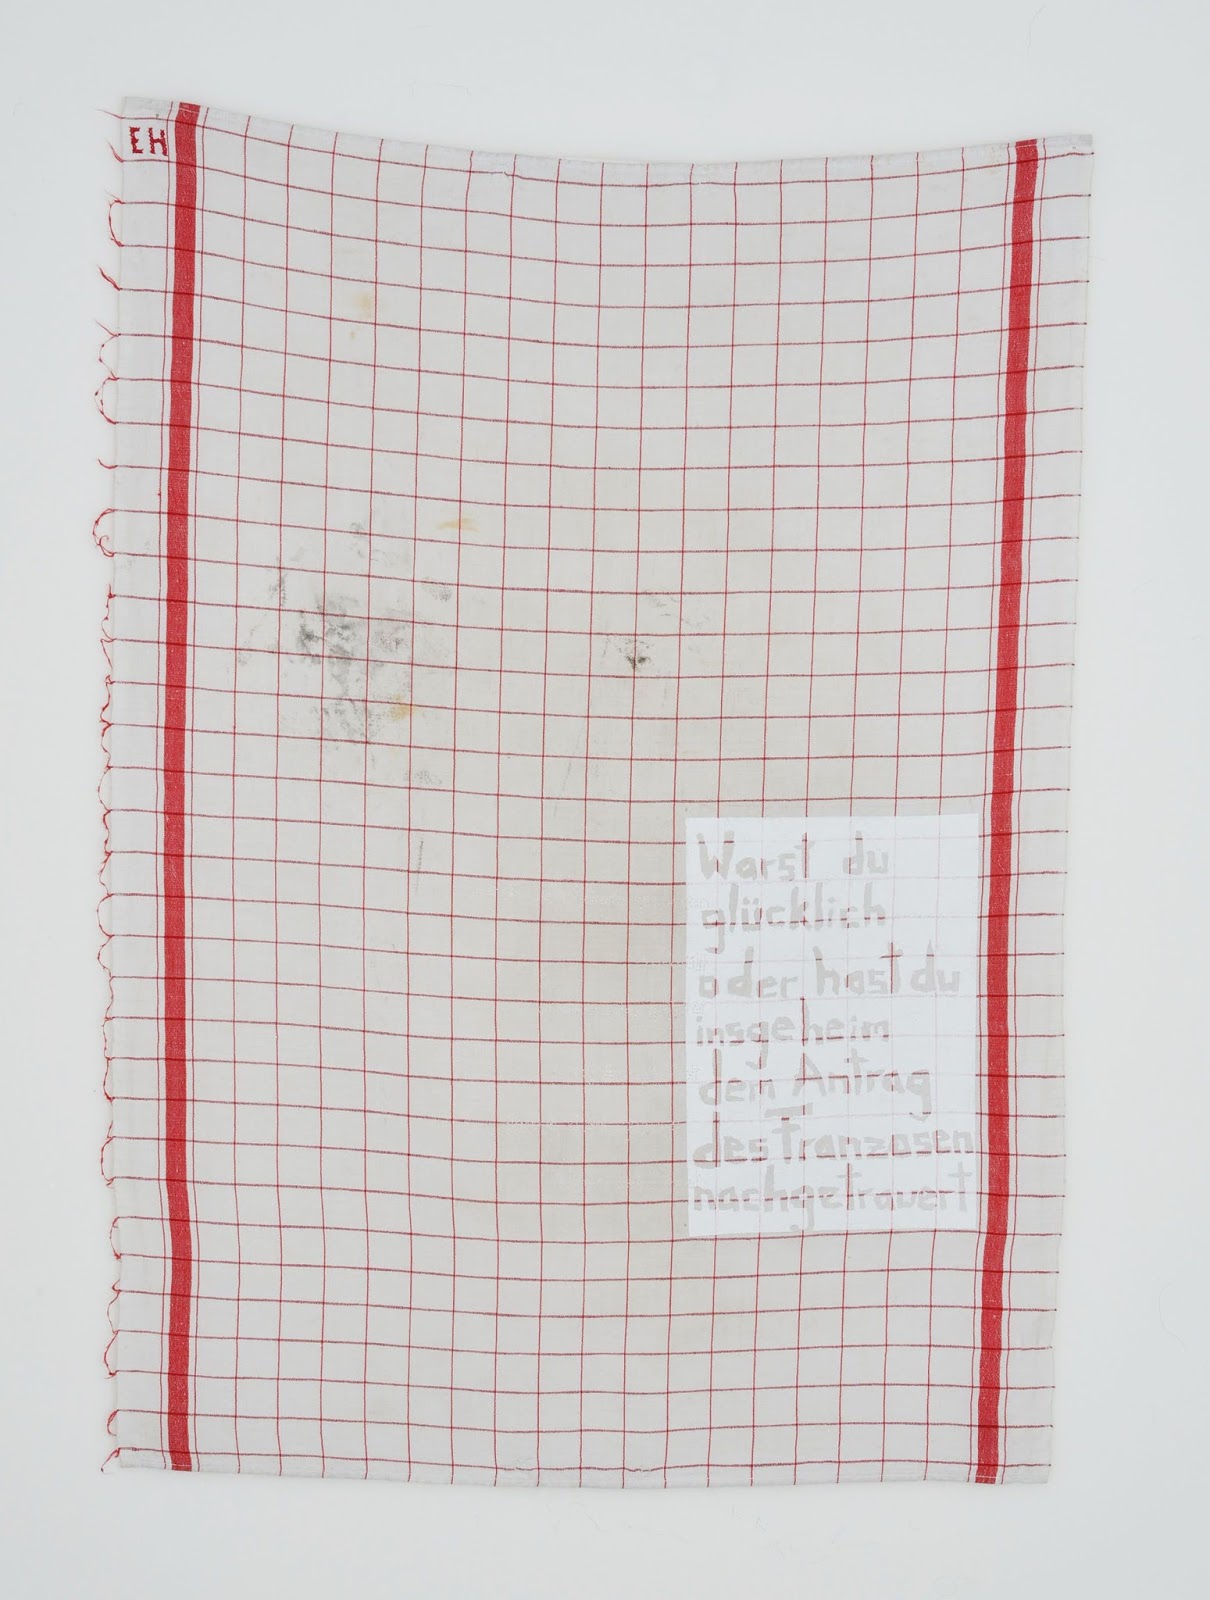 EH
Warst du
glücklich
oder hast du
insgeheim
dem Antrag
des Franzosen
nachgetrauert